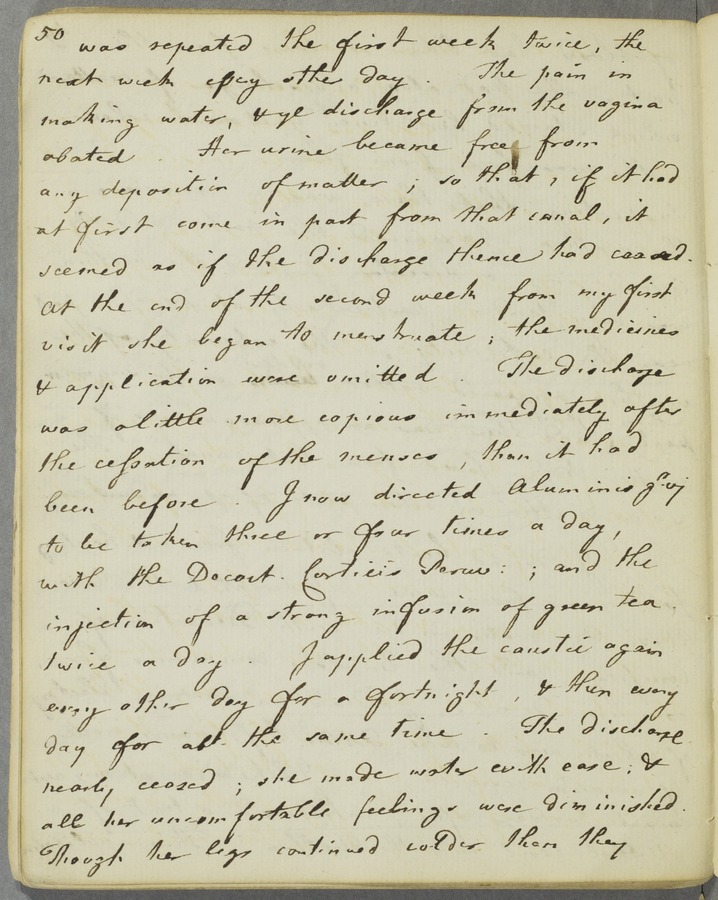 50
was repeated the first week twice, the
next week every other day. The pain in
making water, & ye discharge from the vagina
abated. Her urine became free from
any deposition of matter; so that, if it had
at first come in part from that canal, it
seemed as if the discharge thence had ceased.
At the end of the second week from my first
visit she began to menstruate; the medicines
& application were omitted. The discharge
was a little more copious immediately after
the cessation of the menses, than it had
been before. I now directed Aluminis gr. vj
to be taken three or four times a day,
with the Decoct. Corticis Peruv:; and the
injection of a strong infusion of green tea
twice a day. I applied the caustic again
every other day for a fortnight, & then every
day for abt. the same time. The discharge
nearly ceased; she made water with ease; &
all her uncomfortable feelings were diminished.
Though her legs continued colder than they